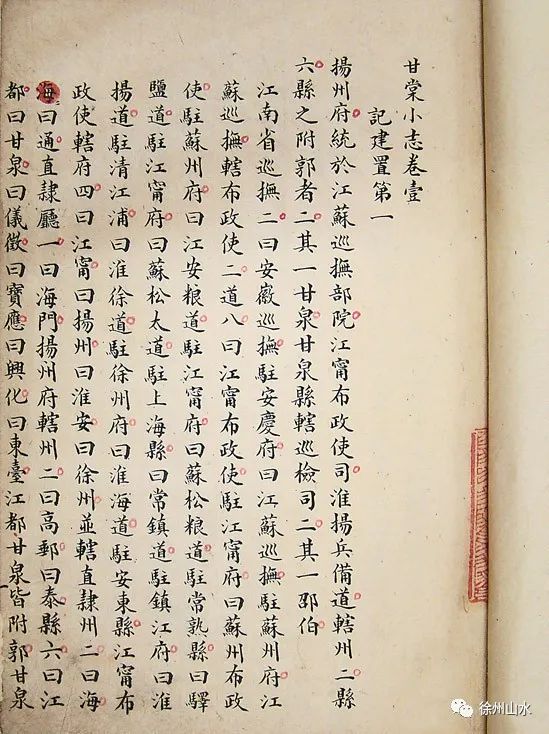 甘棠小志卷壹
記建置第一
揚州府統於江蘇巡撫部院江甯布政使司淮揚兵備道轄州二縣
六縣之附郭者二其一甘泉甘泉縣轄巡檢司二其一邵伯
江南省巡撫二曰安徽巡撫駐安慶府曰江蘇巡撫駐蘇州府江
蘇巡撫轄布政使二道八曰江甯布政使駐江甯府曰蘇州布政
使駐蘇州府曰江安粮道駐江甯府曰蘇松粮道駐常熟縣曰驛
鹽道駐江甯府曰蘇松太道駐上海縣曰常鎮道駐鎮江府曰淮
揚道駐清江浦曰淮徐道駐徐州府曰淮海道駐安東縣江甯布
政使轄府四曰江甯曰揚州曰淮安曰徐州並轄直隸州二曰海
海曰通直隸廳一曰海門揚州府轄州二曰高郵曰泰縣六曰江
都曰甘泉曰儀徵曰寶應曰興化曰東臺江都甘泉皆附郭甘泉
徐州山水